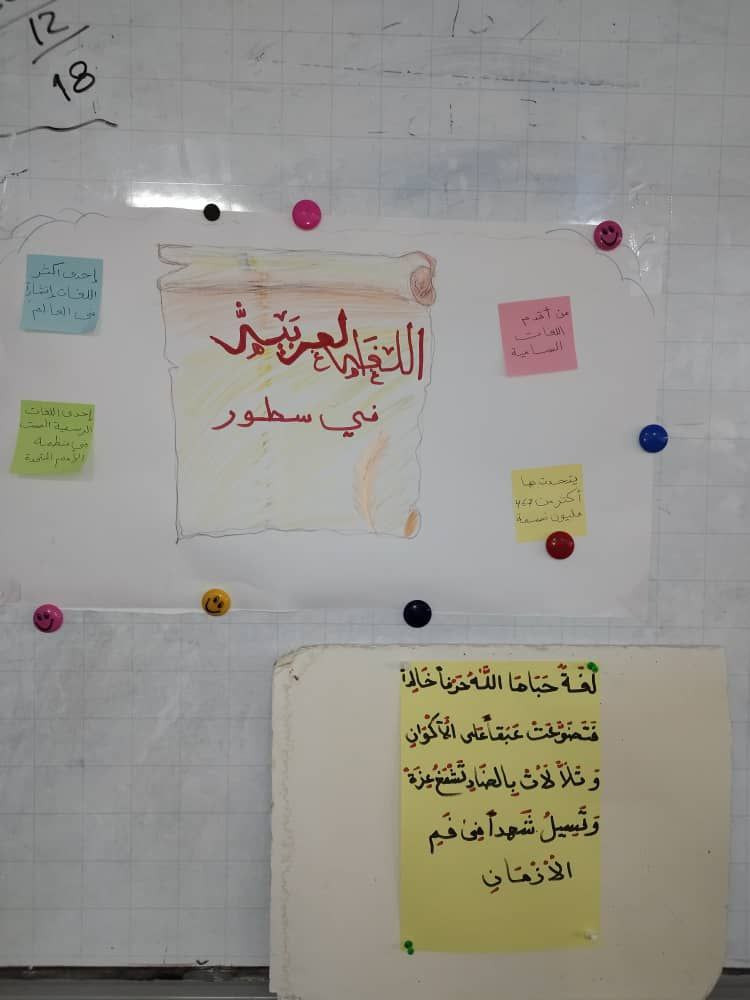 12
18
اللغة العربية
في سطور
إحدى أكثر
اللغات إنتشاراً
في العالم
من أقدم
اللغات
السامية
إحدى اللغات
الرسمية الست
في منظمة
الأمم المتحدة
يتحدث بها
أكثر من ٤٦٧
مليون نسمة
لُغَةٌ حَبَاهَا اللَّهُ حَرْفاً خَالِداً
فَتَضَوَّعَتْ عَبَقاً عَلَى الأَكْوَانِ
وَتَلَأْلَأَتْ بِالضَّادِ تَشْمَخُ عِزَّةً
وَتَسِيلُ شَهداً فِي فَمِ
الأَزْمَانِ